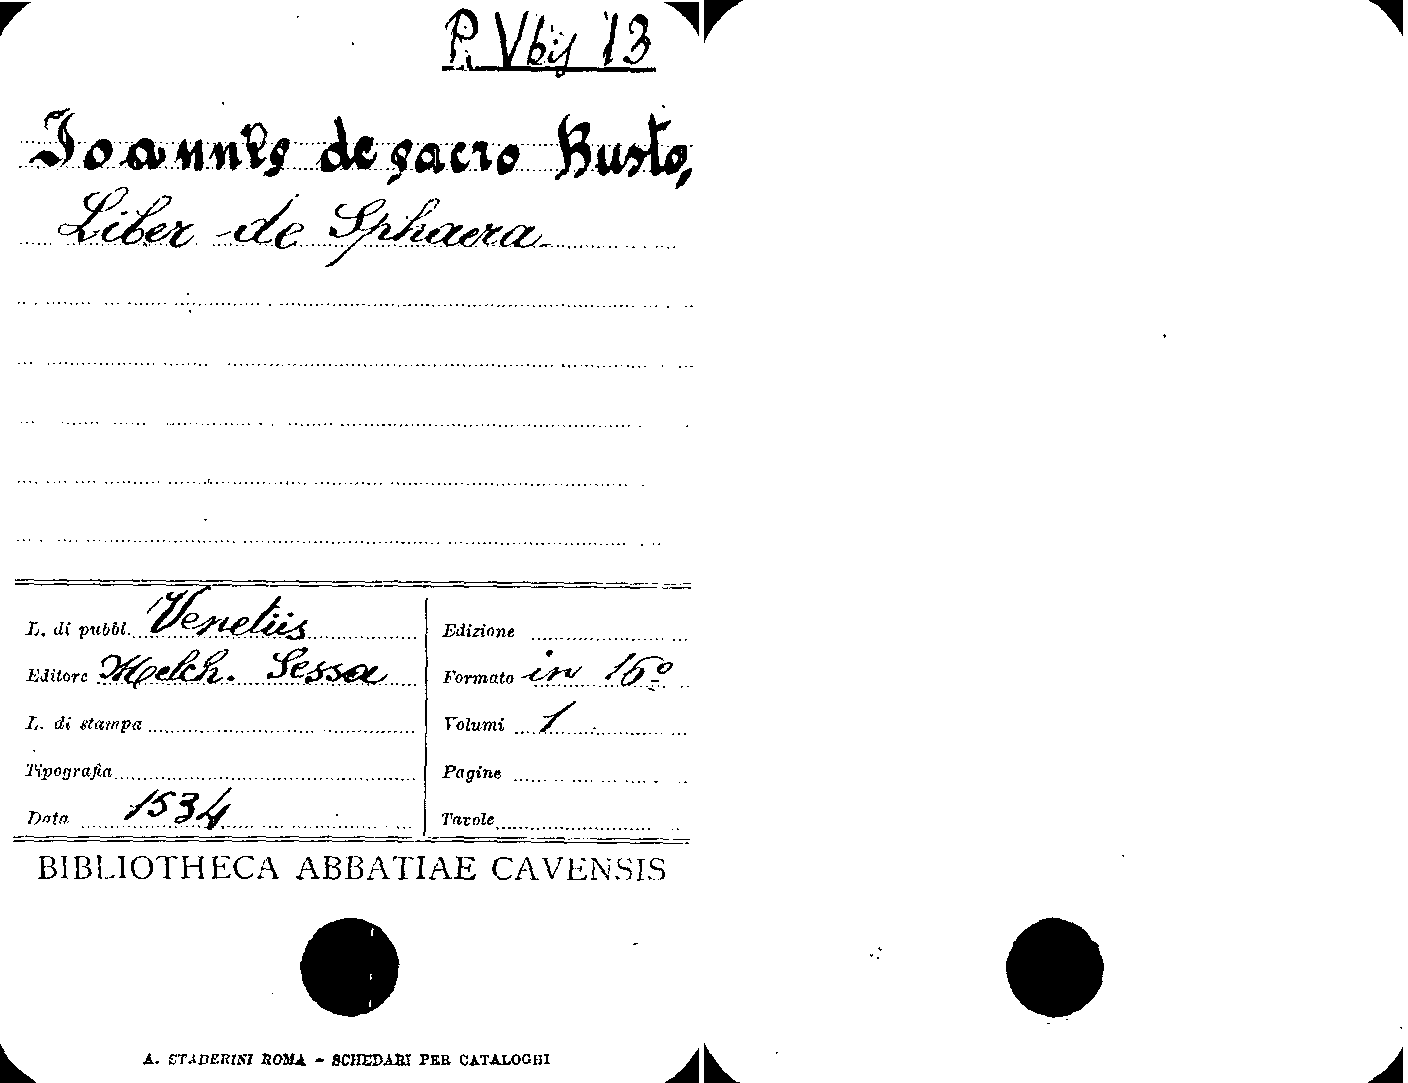 P. Vbij 13
Joannes de sacro Busto,
Liber de Sphaera
L. di pubbl. Venetiis
Editore Melch. Sessa
L. di stampa
Tipografia
Data 1534
Edizione
Formato in 16º
Volumi 1
Pagine
Tavole
BIBLIOTHECA ABBATIAE CAVENSIS
A. STADERINI ROMA - SCHEDARI PER CATALOGHI